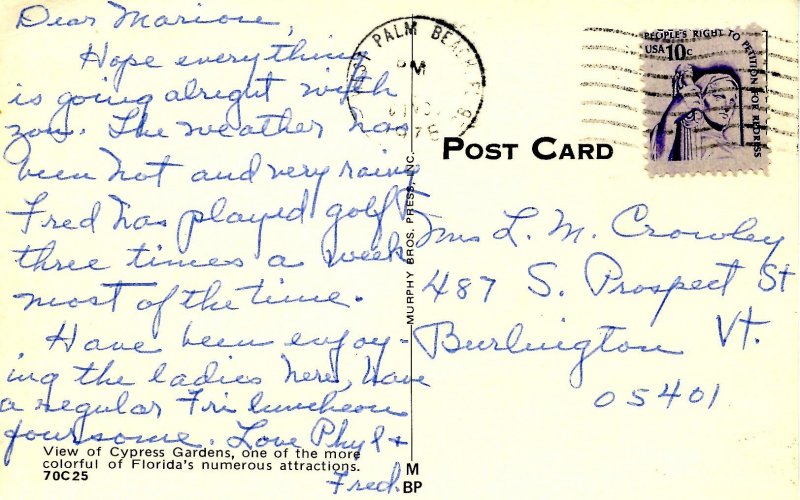 Dear Marion,
Hope everything
is going alright with
you. The weather has
been hot and very rainy
Fred has played golf
three times a week
most of the time.
Have been enjoy-
ing the ladies here, have
a regular Fri luncheon
foursome. Love Phyl &
Fred.
View of Cypress Gardens, one of the more
colorful of Florida's numerous attractions.
70C25
MURPHY BROS. PRESS, INC.
M
BP
WEST PALM BEACH, FL
PM
PEOPLE'S RIGHT TO PETITION FOR REDRESS
USA 10c
POST CARD
Mrs L. M. Crowley
487 S. Prospect St
Burlington Vt.
05401